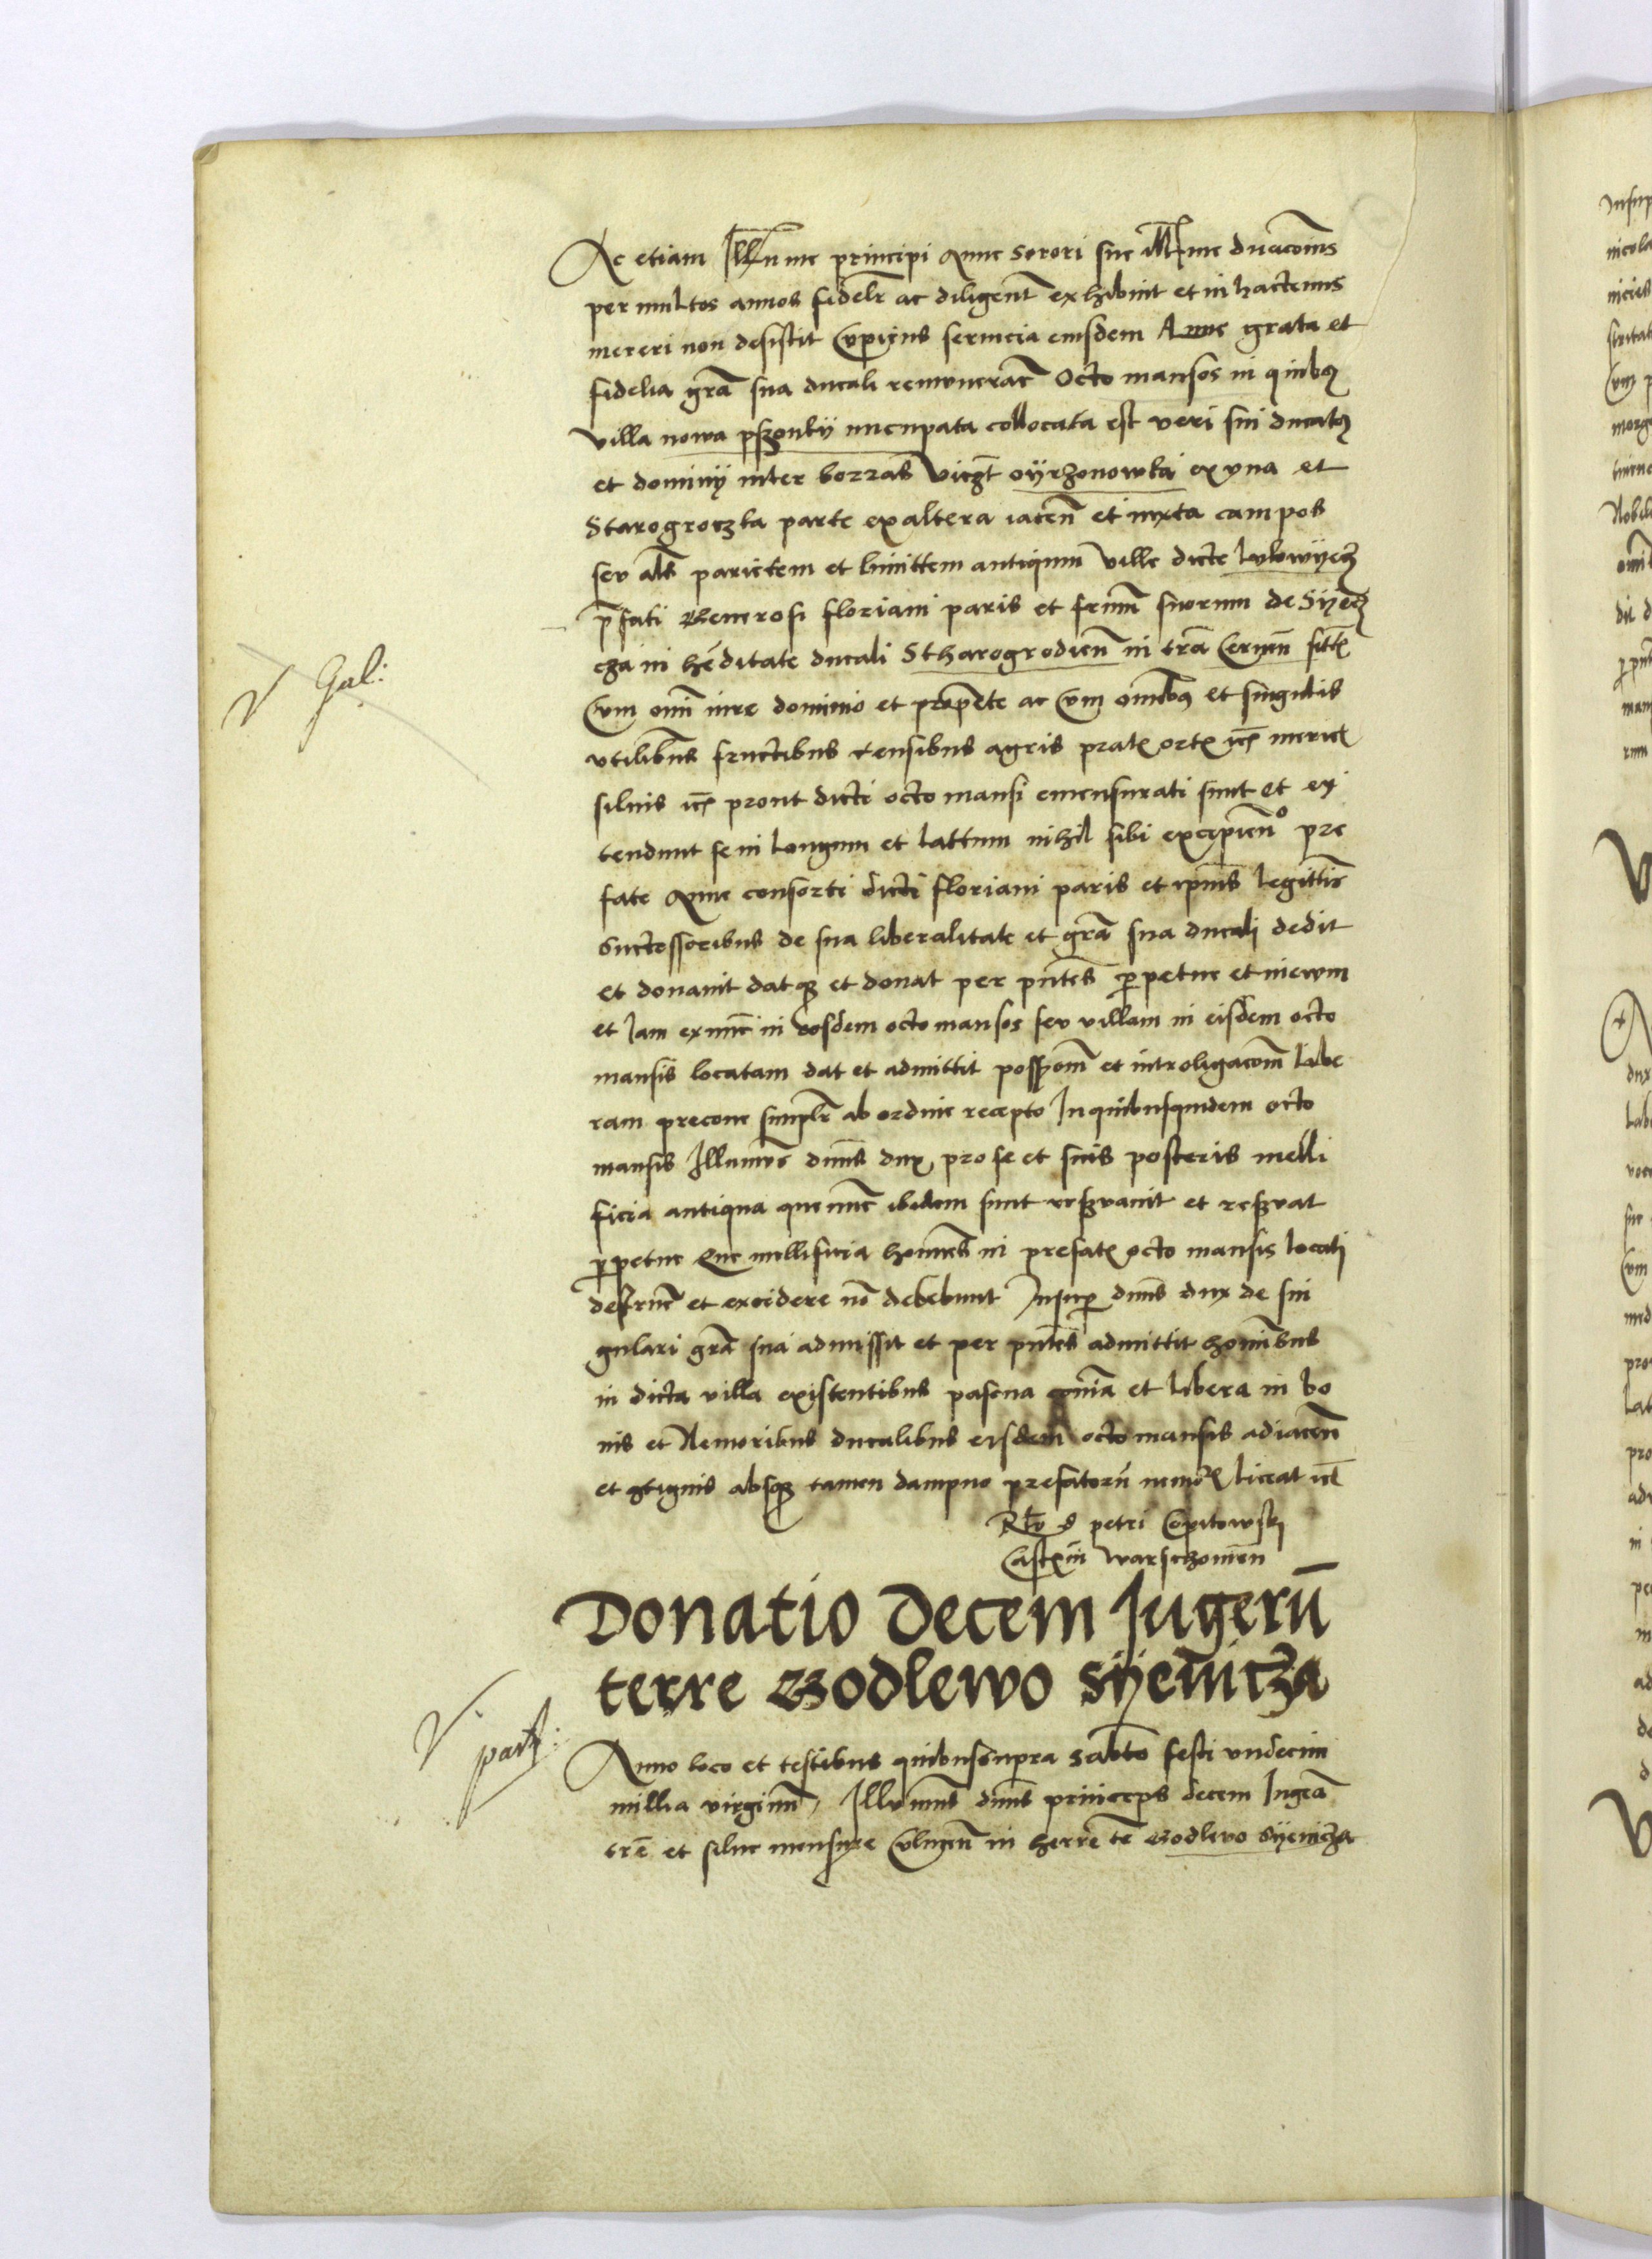 Ac etiam Illume principi Anne sorori sue Illme ducacois
per multos annos fidelr ac diligent exhibuit et in hactenus
mereri non desistit Cupiens seruicia eiusdem Anne grata et
fidelia gra sua ducali remunerar Octo mansos in quibus
villa nowa pszonky nuncupata collocata est veri sui ducatus
et dominy inter borras videlicet oyrzonowka ex vna et
Starogroczka parte ex altera iacen et iuxta campos
seu als parietem et limittem antiquum ville dicte Lubowyecz
prefati Generosi floriani paris et frum suorum de Syecz
cza in hereditate ducali Stharogrodien in tra Cernen sitt
Cum omi iure dominio et proprete ac Cum omibus et singulis
vtilibus fructibus censibus agris prat ort
siluis prout dicti octo mansi emensurati sunt et ex
tendunt se in Longum et Lattum nihil sibi excipiendo pre
fate Anne consorti dicti floriani paris et ipius Legittis
successoribus de sua liberalitate et gra sua ducali dedit
et donauit datque et donat per pntes perpetue et in ewm
et Jam ex nunc in eosdem octo mansos seu villam in eisdem octo
mansis locatam dat et admittit possom et introligacom Libe
ram precone simplr ab ordine recepto In quibusquidem octo
mansis Illumus duns dux pro se et suis posteris melli
ficia antiqua que nunc ibidem sunt reseruauit et reseruat
perpetue Que mellificia homines in prefatis octo mansis locati
destruere et excidere no debebunt Insuper duns dux de sin
gulari gra sua admissit et per pntes admittit hominibus
in dicta villa existentibus pascua omnia et Libera in bo
nis et Nemoribus ducalibus eisdem octo mansis adiacen
et contiguis absque tamen dampno prefatoru nemor Liceat
Rlo d petri Copitowski
Castellani Warschouien
Donatio decem Jugeru
terre Godlewo Syenicza
V Gal:
V part:
Anno loco et testibus quibus supra Sabbto festi vndecim
millia virginum, Illumus duns princeps decem Jugera
tre et silue mensure Culmen in herre te Godlewo Syenicza